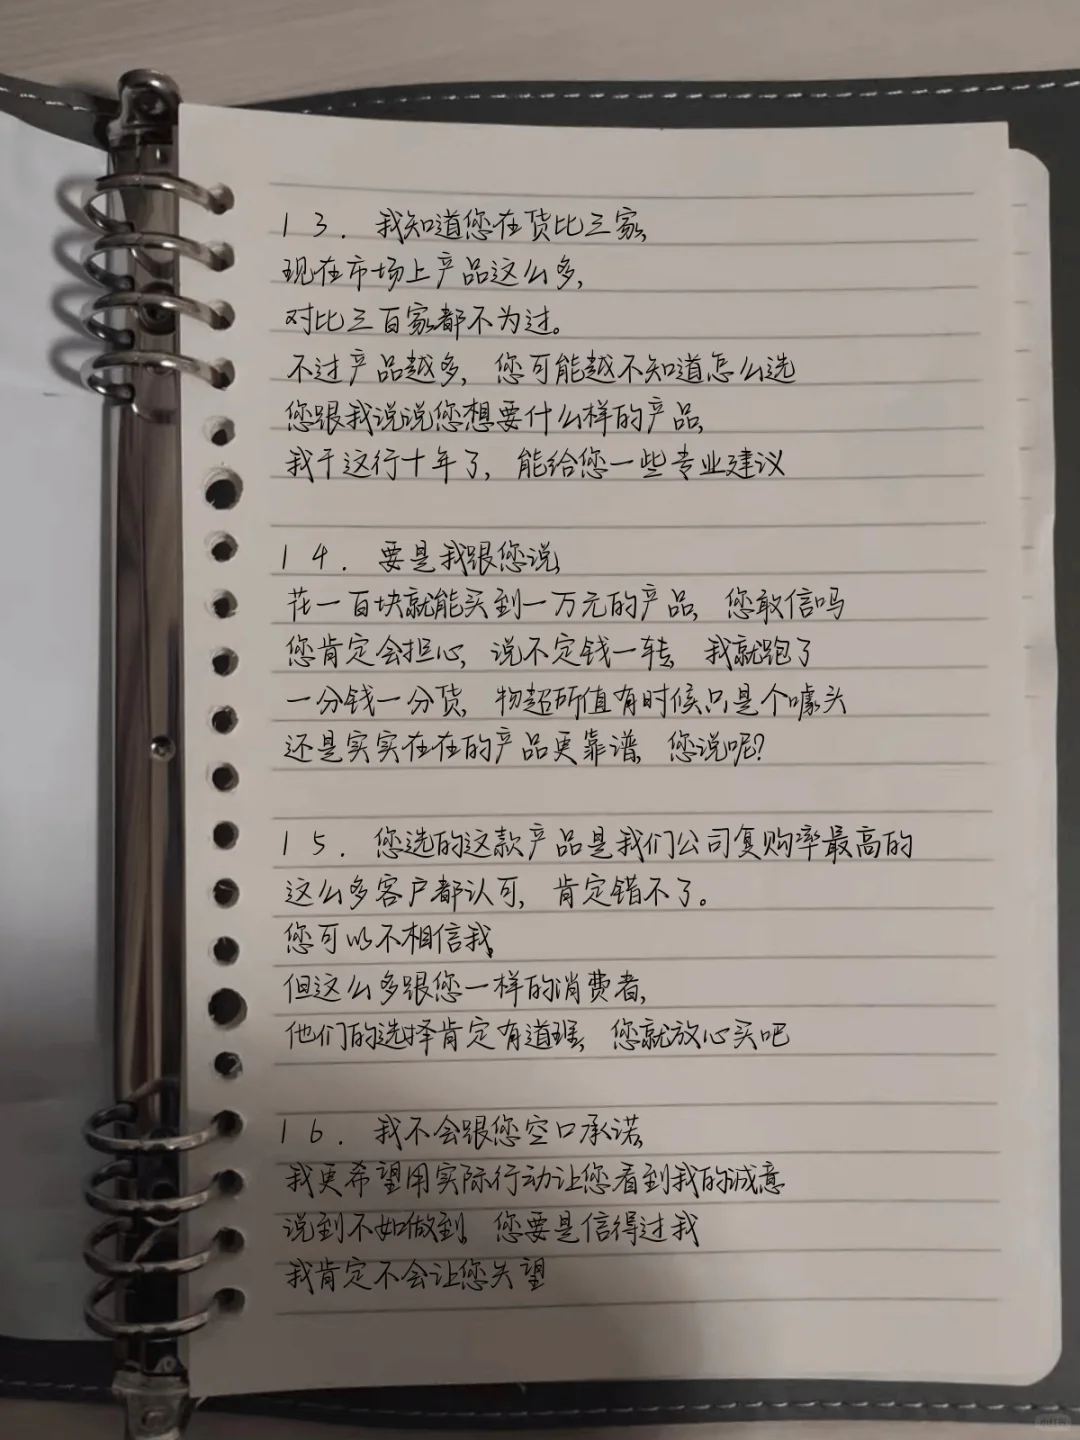 13. 我知道您在货比三家,
现在市场上产品这么多,
对比三百家都不为过。
不过产品越多, 您可能越不知道怎么选
您跟我说说您想要什么样的产品,
我干这行十年了, 能给您一些专业建议
14. 要是我跟您说,
花一百块就能买到一万元的产品, 您敢信吗
您肯定会担心, 说不定钱一转, 我就跑了
一分钱一分货, 物超所值有时候只是个噱头
还是实实在在的产品更靠谱, 您说呢?
15. 您选的这款产品是我们公司复购率最高的
这么多客户都认可, 肯定错不了。
您可以不相信我,
但这么多跟您一样的消费者,
他们的选择肯定有道理, 您就放心买吧
16. 我不会跟您空口承诺,
我更希望用实际行动让您看到我的诚意
说到不如做到, 您要是信得过我
我肯定不会让您失望
小红书